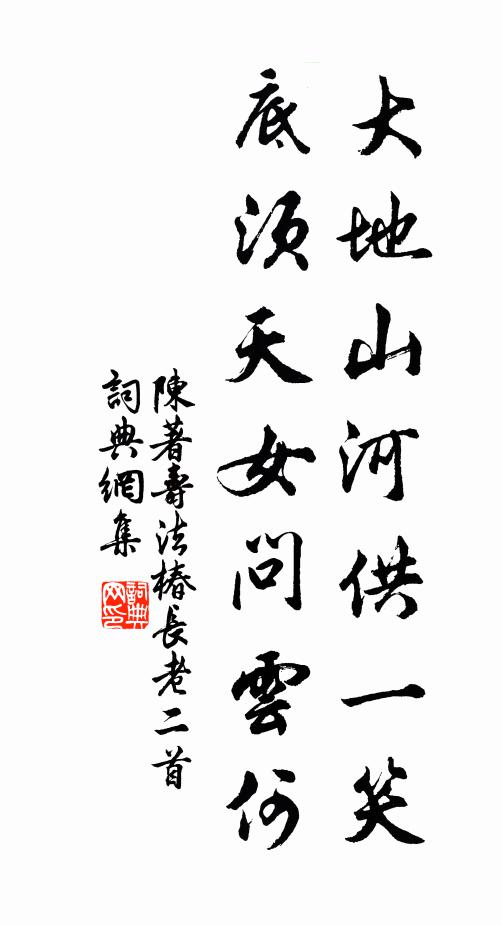 大地山河供一笑
底須天女問雲何
陳著壽法椿長老二首
詞典網集
詞典網印